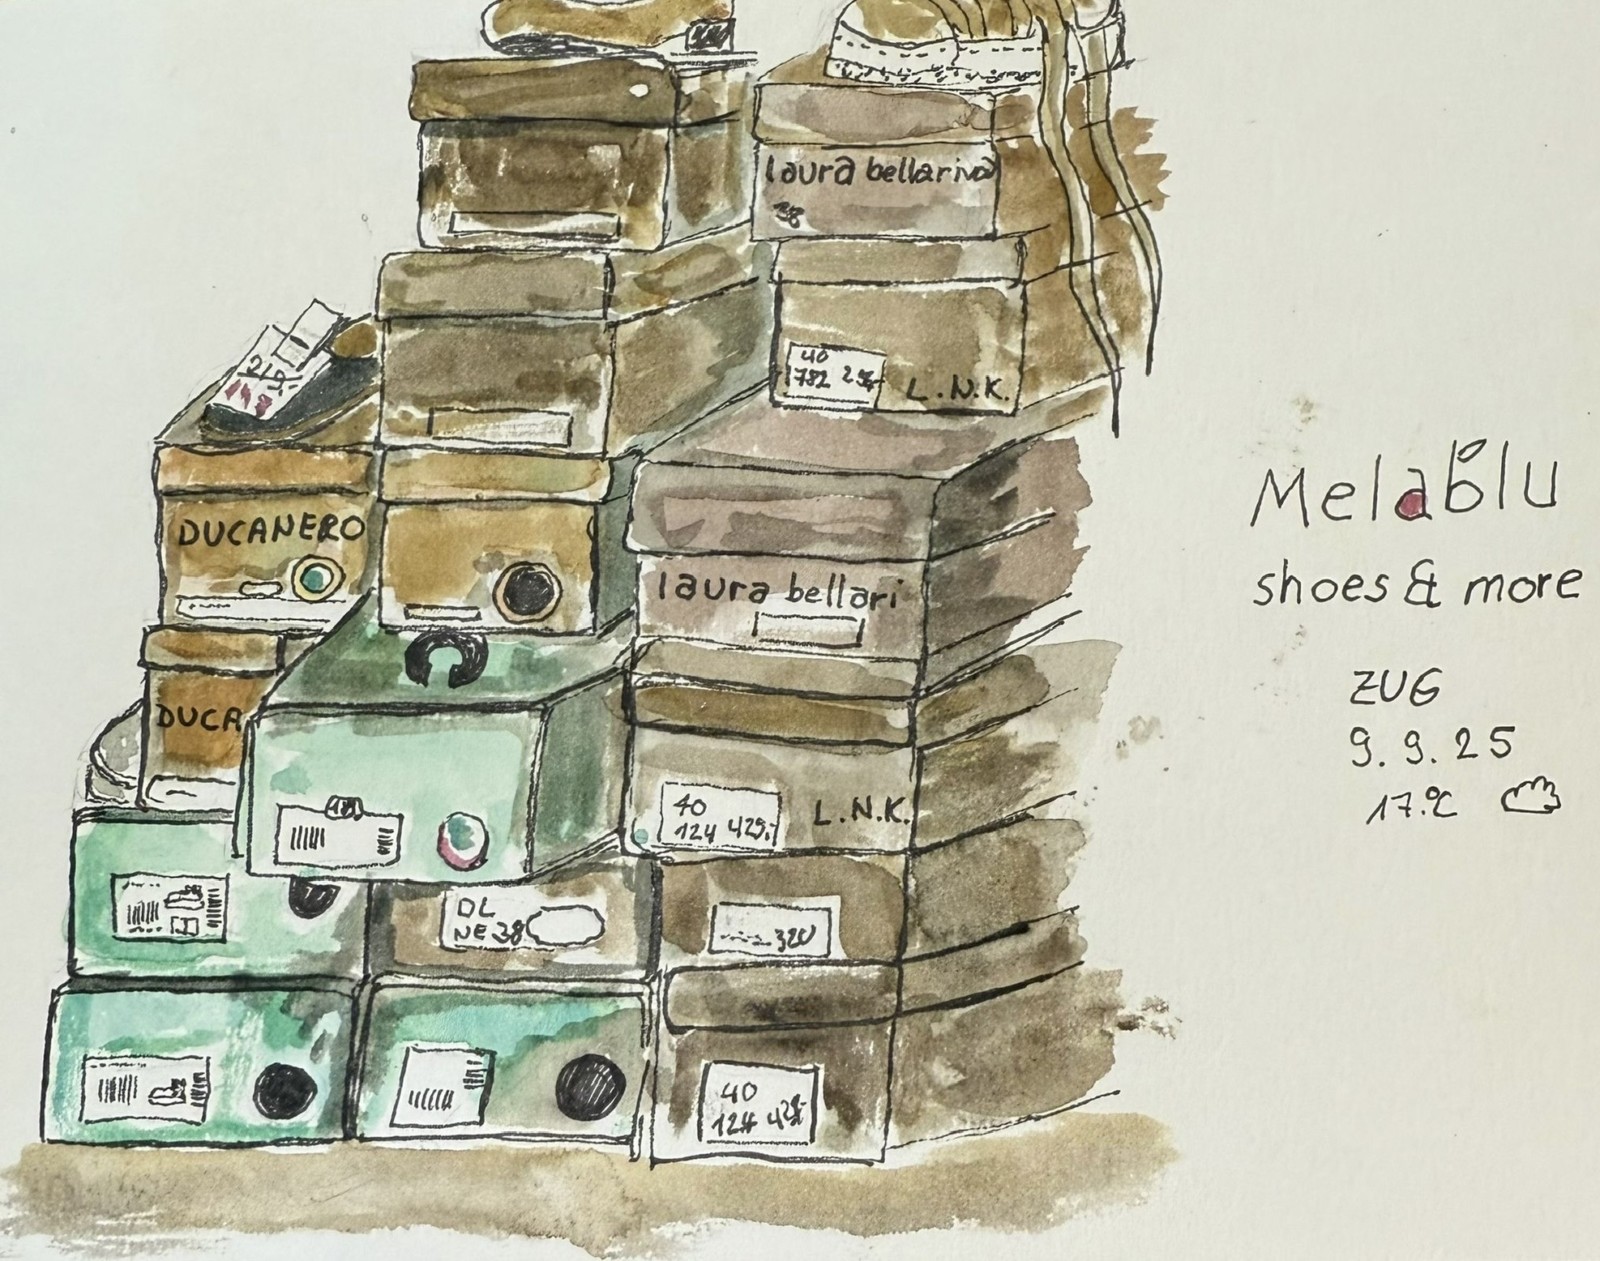 laura bellariva
38
40
782
L.N.K.
DUCANERO
laura bellari
DUCA
40
124 429.-
L.N.K.
DL
NE 38
320
40
124 429.-
Melablu
shoes & more
ZUG
9.9.25
17.°C